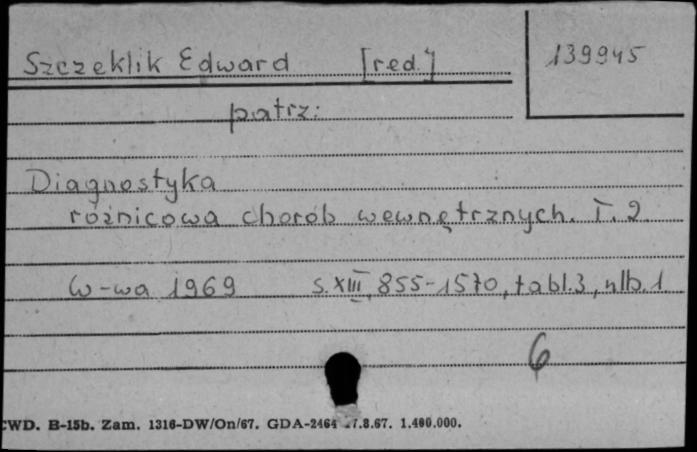 Szczeklik Edward [red.] 139945
patrz:
Diagnostyka
różnicowa chorób wewnętrznych. T. 2
W-wa 1969 s. XIII, 855-1570, tabl. 3, nlb. 1
6
CWD. B-15b. Zam. 1316-DW/On/67. GDA-2464 .8.67. 1.400.000.